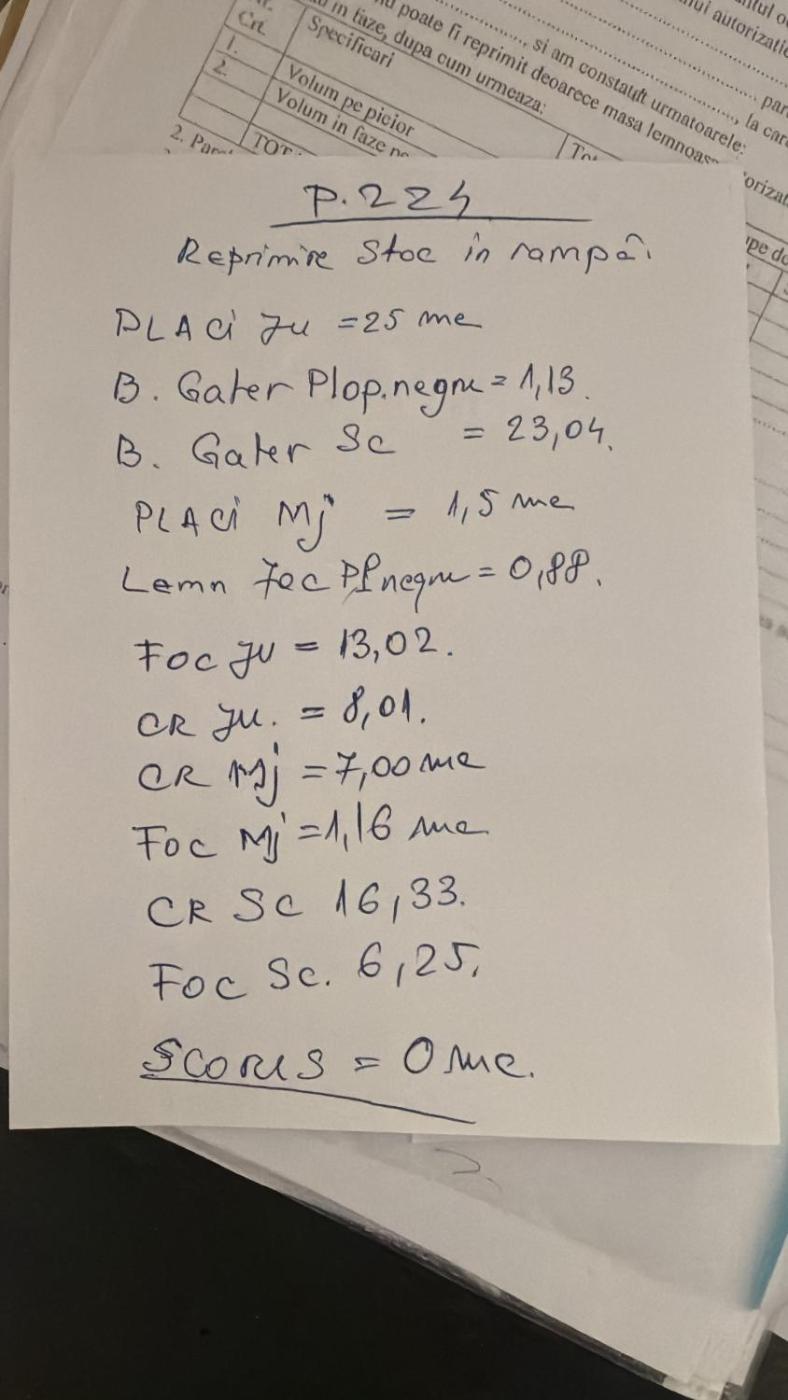 Crt.
Specificari
1.
2.
Volum pe picior
Volum in faze
TOT
2.
in faze, dupa cum urmeaza:
poate fi reprimit deoarece masa lemnoas
si am constatat urmatoarele:
la car
par
autorizatie
P. 224
Reprimire Stoc în rampă.
PLACi Ju = 25 mc
B. Gater Plop.negru = 1,13.
B. Gater Sc = 23,04.
PLACi Mj = 1,5 mc
Lemn Foc Pl negru = 0,88.
Foc JU = 13,02.
CR Ju. = 8,01.
CR Mj = 7,00 mc
Foc Mj = 1,16 mc
CR SC 16,33.
Foc Sc. 6,25.
SCORUS = 0 mc.